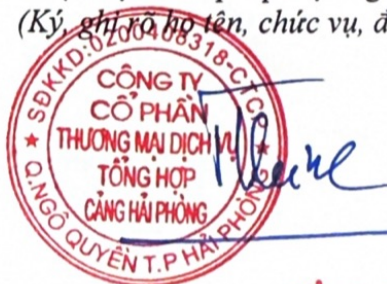 (Ký, ghi rõ họ tên, chức vụ, đ
SĐKKD:0200108318-CTCP
CÔNG TY
CỔ PHẦN
THƯƠNG MẠI DỊCH VỤ
TỔNG HỢP
CẢNG HẢI PHÒNG
Q.NGÔ QUYỀN T.P HẢI PHÒNG